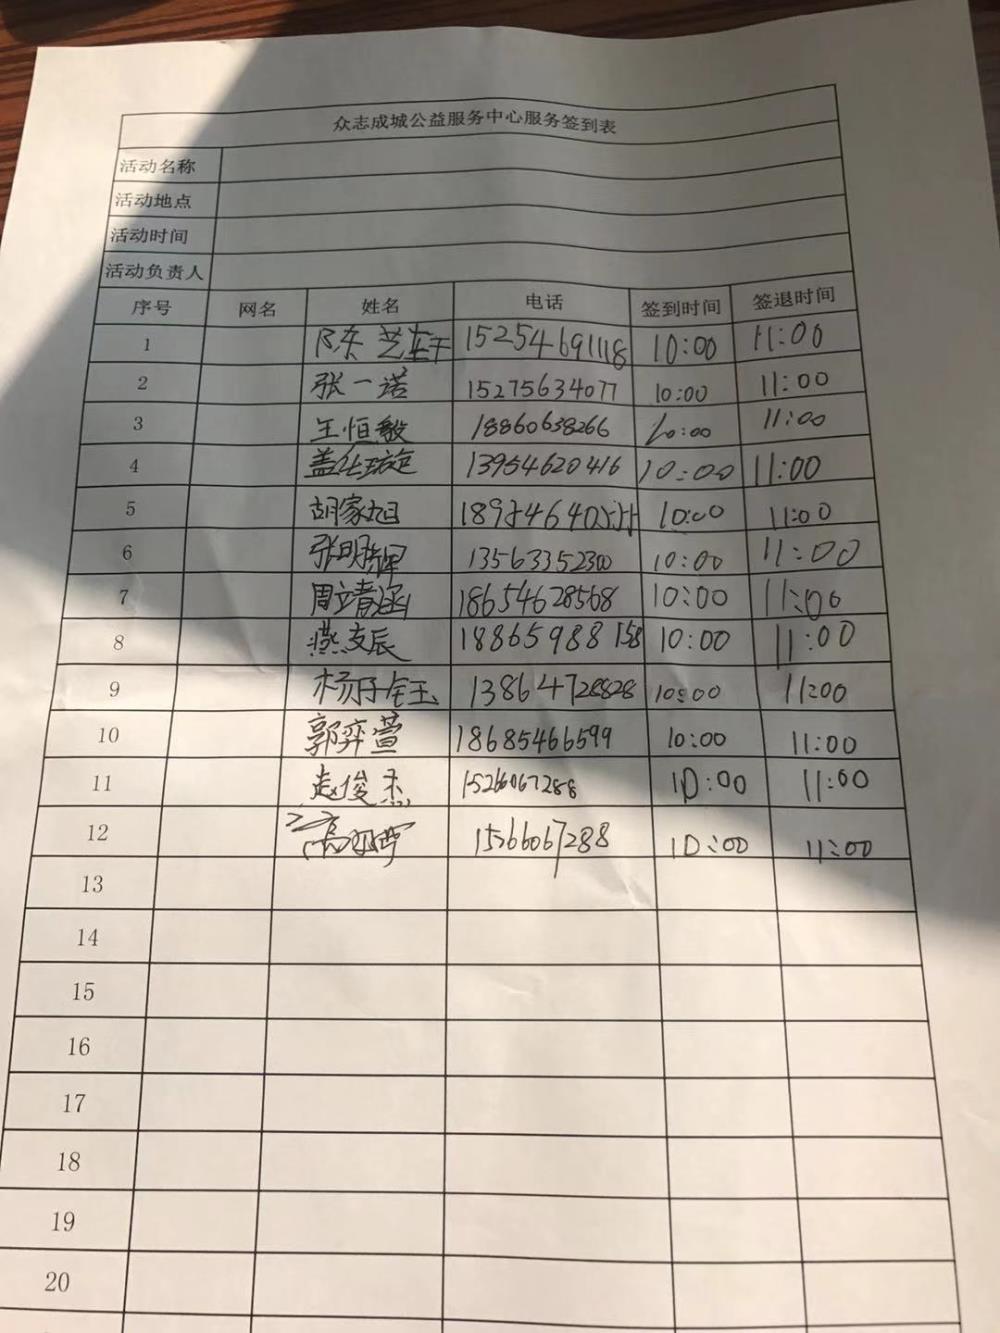 众志成城公益服务中心服务签到表
活动名称
活动地点
活动时间
活动负责人
序号 网名 姓名 电话 签到时间 签退时间
1 陈芝轩 15254691118 10:00 11:00
2 张一诺 15275634077 10:00 11:00
3 王恒毅 18860638266 10:00 11:00
4 盖仕琁 13954620416 10:00 11:00
5 胡家旭 10:00 11:00
6 张明辉 13563352300 10:00 11:00
7 周靖涵 18654628568 10:00 11:00
8 燕支辰 18865988158 10:00 11:00
9 杨子钰 13864728828 10:00 11:00
10 郭弈萱 18685466599 10:00 11:00
11 赵俊杰 15266067288 10:00 11:00
12 15266067288 10:00 11:00
13
14
15
16
17
18
19
20